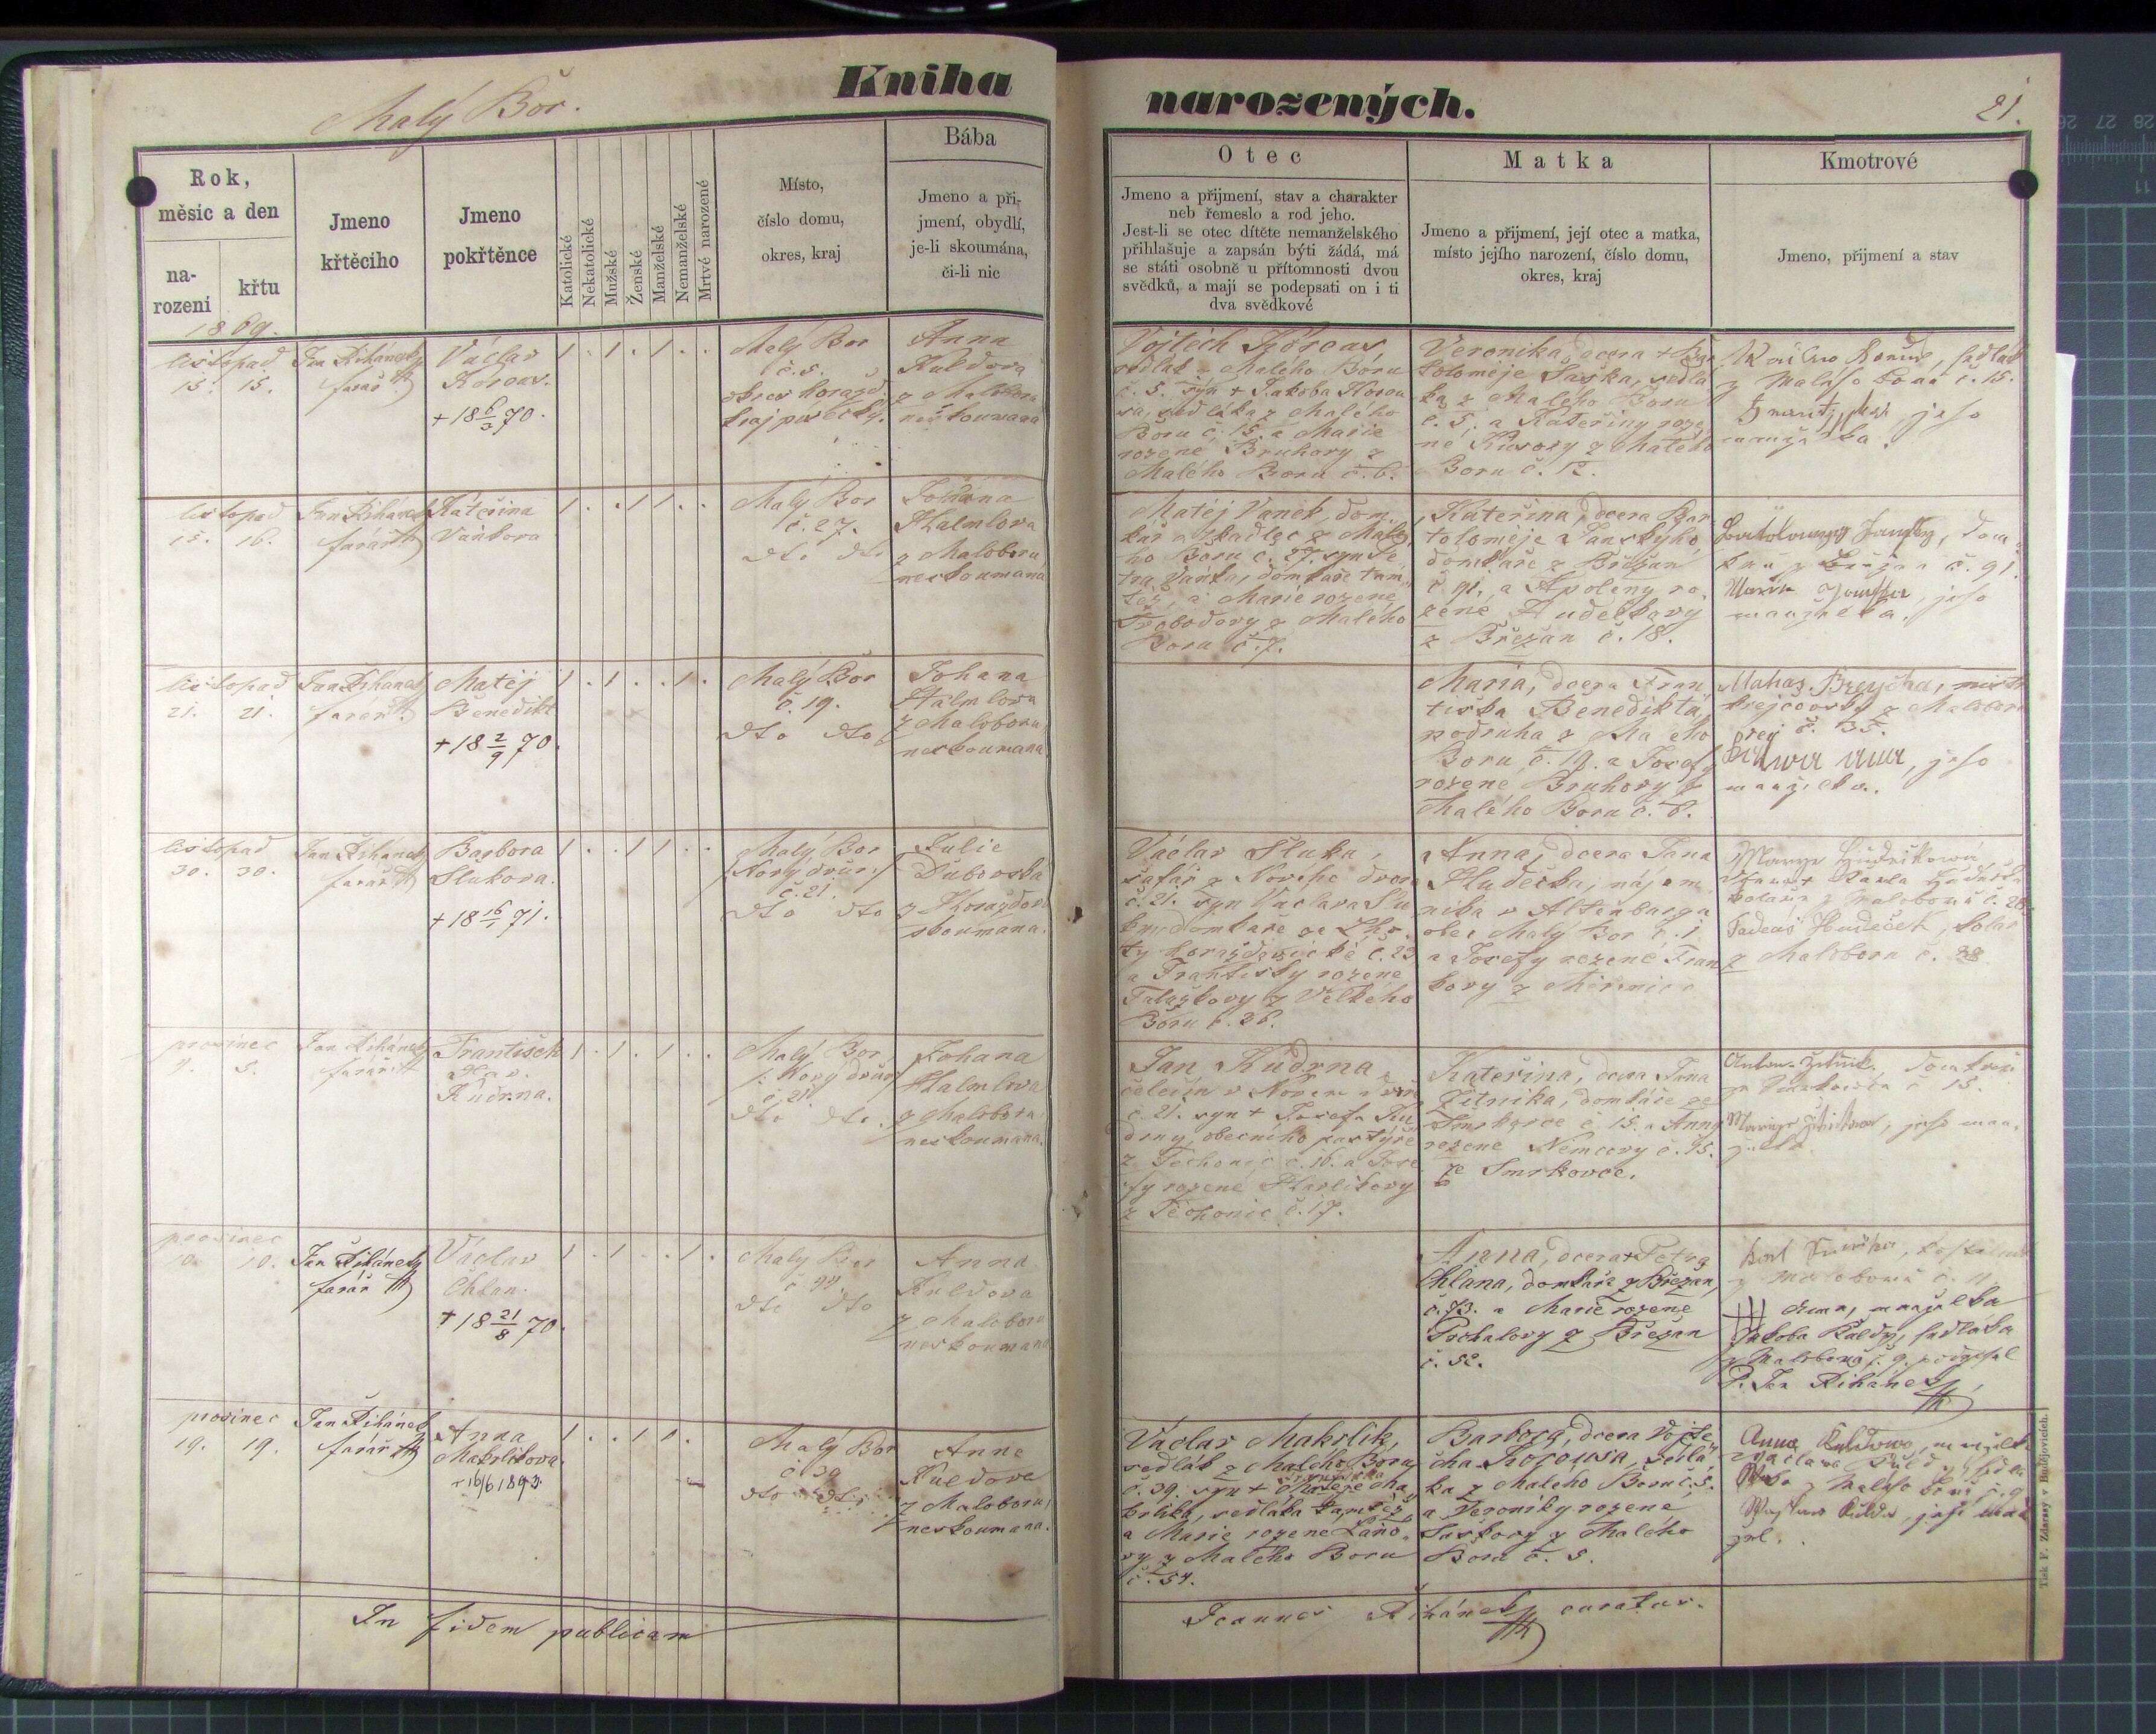 Malý Bor.
Kniha
narozených.
21.
Rok,
měsíc a den
na-
rození
křtu
Jmeno
křtěcího
Jmeno
pokřtěnce
Katolické
Nekatolické
Mužské
Ženské
Manželské
Nemanželské
Mrtvé narozené
Místo,
číslo domu,
okres, kraj
Bába
Jmeno a při-
jmení, obydlí,
je-li skoumána,
či-li nic
Otec
Jmeno a přijmení, stav a charakter
neb řemeslo a rod jeho.
Jest-li se otec dítěte nemanželského
přihlašuje a zapsán býti žádá, má
se státi osobně u přítomnosti dvou
svědků, a mají se podepsati on i ti
dva svědkové
Matka
Jmeno a přijmení, její otec a matka,
místo jejího narození, číslo domu,
okres, kraj
Kmotrové
Jmeno, přijmení a stav
1869.
listopad
15. 15.
Jan Řihánek
farář
Václav
Korous.
+ 18 6/3 70.
1 . 1 . 1 . .
Malý Bor
č. 5.
okres Horažď.
kraj písecký.
Anna
Kuldova
z Malobora
neskoumana
Vojtěch Korous
sedlák z Malého Boru
č. 5. syn + Jakoba Korou
sa, sedláka z Malého
Boru č. 15. a Marie
rozené Bruhovy z
Malého Boru č. 6.
Veronika, dcera + Bar
toloměje Saska, sedlá
ka z Malého Boru
č. 5. a Kateřiny roze
né z Malého
Boru č. 12.
sedlák
z Malého Boru č. 15.
jeho
manželka.
listopad
15. 16.
Jan Řihánek
farář
Kateřina
Vaňkova
1 . . 1 1 . .
Malý Bor
č. 27.
dto dto
Johana
Halmlova
z Maloboru
neskoumaná
Matěj Vaněk, dom
kář a tkadlec z Malé
ho Boru č. 27. syn Pe
tra Vaňka, domkáře tam
též, a Marie rozené
Svobodovy z Malého
Boru č. 7.
Kateřina, dcera Bar
toloměje Janského,
domkáře z Břežan
č. 91, a Apoleny ro
zené Hudečkovy
z Břežan č. 18.
Bartolomej Jansky, dom
kář z Břežan č. 91.
Marie Janska, jeho
manželka.
listopad
21. 21.
Jan Řihánek
farář
Matěj
Benedikt
+ 18 2/9 70.
1 . 1 . . 1 .
Malý Bor
č. 19.
dto dto
Johana
Halmlova
z Maloboru,
neskoumana
Maria, dcera Fran
tiska Benedikta,
podruha z Malého
Boru č. 19. a Josefy
rozené Bruhovy z
Malého Boru č. 6.
krejčovský z Malobora
č. 35.
jeho
manželka.
listopad
30. 30.
Jan Řihánek
farář
Barbora
Slukova.
+ 18 16/1 71.
1 . . 1 1 . .
Malý Bor
/:Nový dvůr:/
č. 21.
dto dto
Julie
Dubovska
z Horažďov.
skoumána.
Václav Sluka,
šafář z Nového dvora
č. 21. syn Václava Slu
ky, domkáře ze Lho
ty horažďovické č. 23
a Frantisky rozené
z Velkého
Boru č. 26.
Anna, dcera Jana
Hudečka, nájem
níka v Altenburgu
obec Malý Bor č. 1
a Josefy rozené Fran
kovy z
Marye Hudečkowá,
z Malobora č. 28
Tadeáš Hudeček, kolář
z Malobora č. 28
prosinec
5.
Jan Řihánek
farář
František
Kudrna.
1 . 1 . 1 . .
Malý Bor
/: Nový dvůr
č. 21
dto dto.
Johana
Halmlova
z Malobora
neskoumana.
Jan Kudrna,
čeledín v Novém dvoře
č. 21. syn + Josefa Ku
drny, obecního pastýře
z Těchonic č. 16. a Jose
fy rozené Harlikovy
z Těchonic č. 17.
Kateřina, dcera Jana
Žitníka, domkáře ze
Smrkovce č. 15. a Anny
rozené Němcovy č. 15.
ze Smrkovce.
domkář
č 15.
jeho man
želka
prosinec
10. 10.
Jan Řihánek
farář
Václav
Chlan.
+ 18 21/8 70.
1 . 1 . . 1 .
Malý Bor
č 44.
dto dto
Anna
Kuldova
z Malobora
neskoumana
Anna, dcera + Petra
Chlana, domkáře z Břežan,
č. 73. a Marie rozené
Pschalovy z Břežan
č. 52.
z Malobora č. 11
+++ Anna, manželka
Jakoba Kuldy, sedláka
z Malobora č. 9. podepsal
P. Jan Řihánek
prosinec
19. 19.
Jan Řihánek
farář
Anna
Makrlikova.
+ 16/6 1893.
1 . . 1 1 .
Malý Bor
č 39
dto dto
Anna
Kuldova
z Maloboru,
neskoumana.
Václav Makrlík,
sedlák z Malého Boru
č. 39. syn + Matěje Ma
krlíka, sedláka tamtéž
a Marie rozené
vy z Malého Boru
č. 54.
Barbora, dcera Vojtě
cha Korousa, sedlá
ka z Malého Boru č. 5.
a Veroniky rozené
Saskovy z Malého
Boru č. 5.
Anna Kuldowa, manželka
Václava Kuldy, sedlá
ka z Malého Boru č. 9
Kulda, její man
žel.
In fidem publicam
Joannes Řihánek curatus.
Tisk F. Zdarssy v Budějovicích.